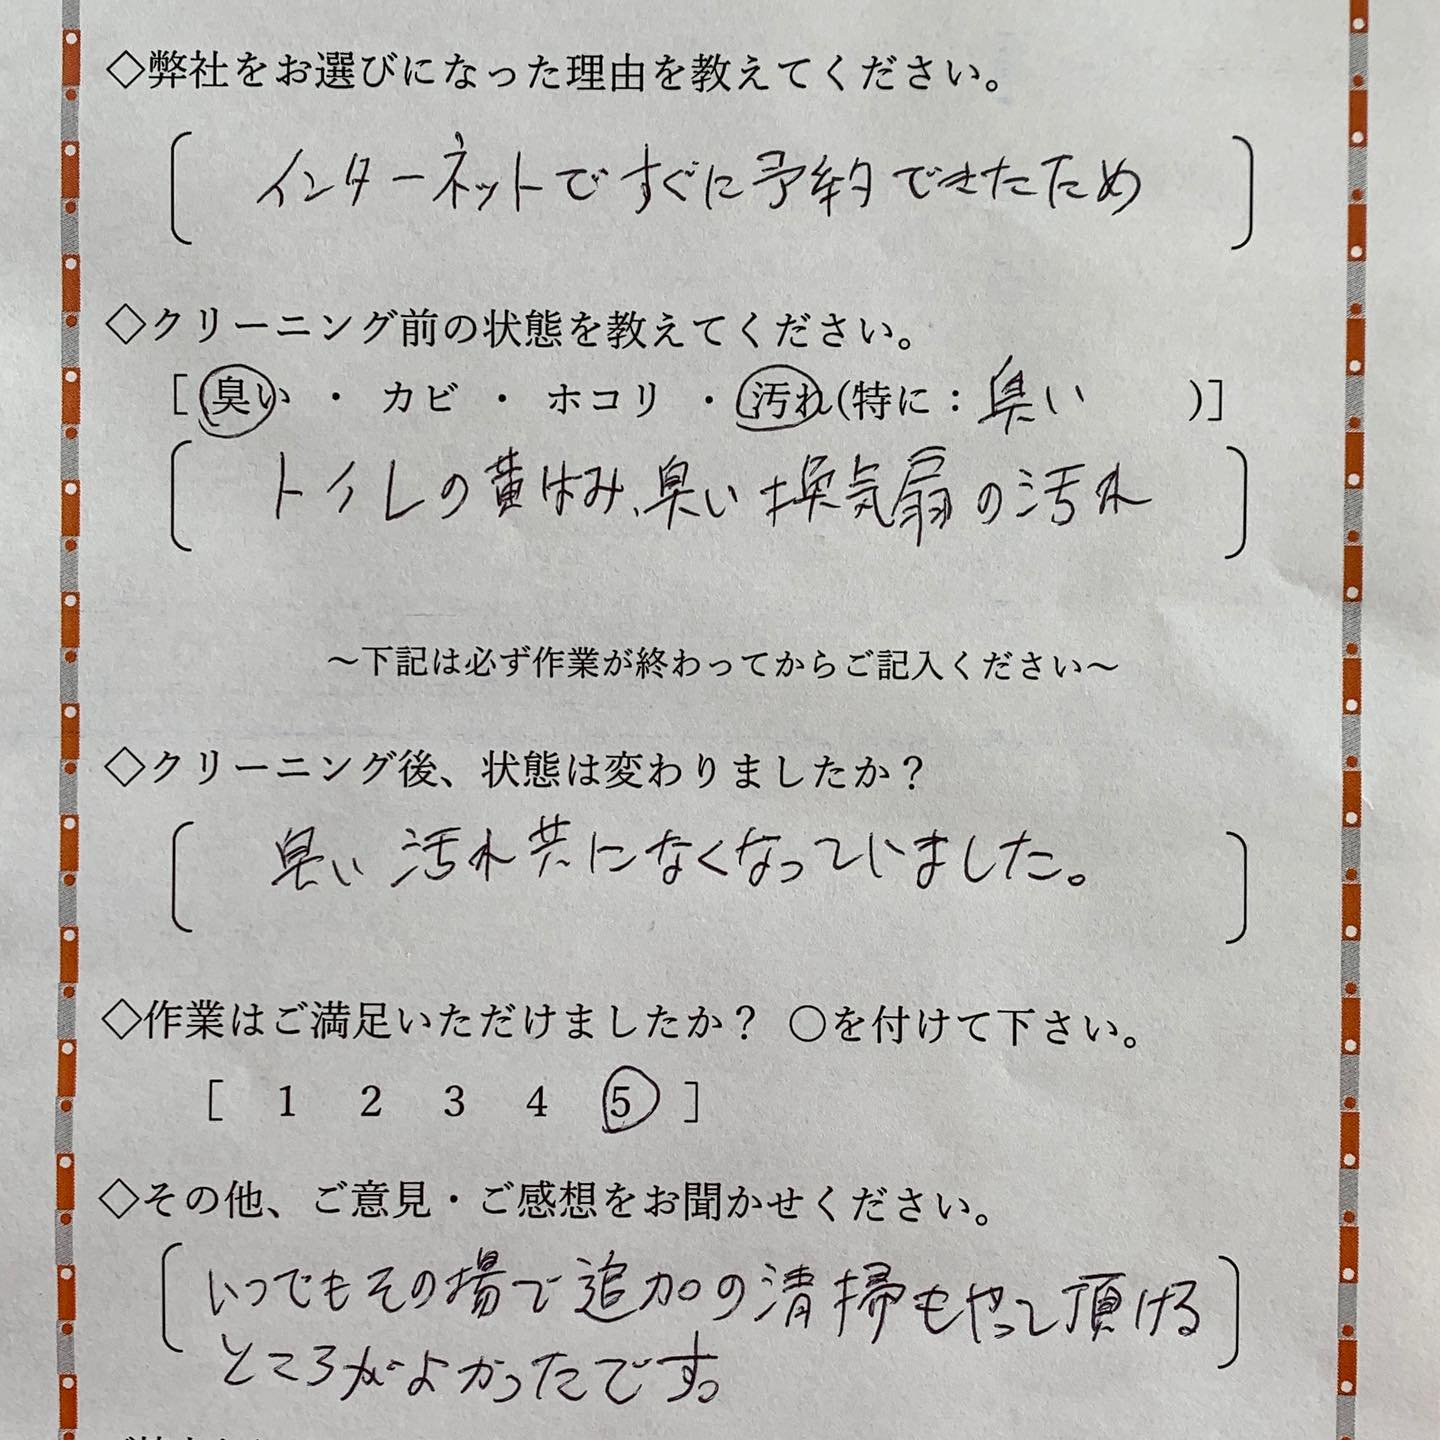 ◇弊社をお選びになった理由を教えてください。
インターネットですぐに予約できたため
◇クリーニング前の状態を教えてください。
[ 臭い ・ カビ ・ ホコリ ・ 汚れ(特に：臭い )]
トイレの黄ばみ、臭い 換気扇の汚れ
～下記は必ず作業が終わってからご記入ください～
◇クリーニング後、状態は変わりましたか？
臭い 汚れ共になくなっていました。
◇作業はご満足いただけましたか？ ○を付けて下さい。
[ 1 2 3 4 5 ]
◇その他、ご意見・ご感想をお聞かせください。
いつでもその場で追加の清掃もやって頂ける
ところがよかったです。